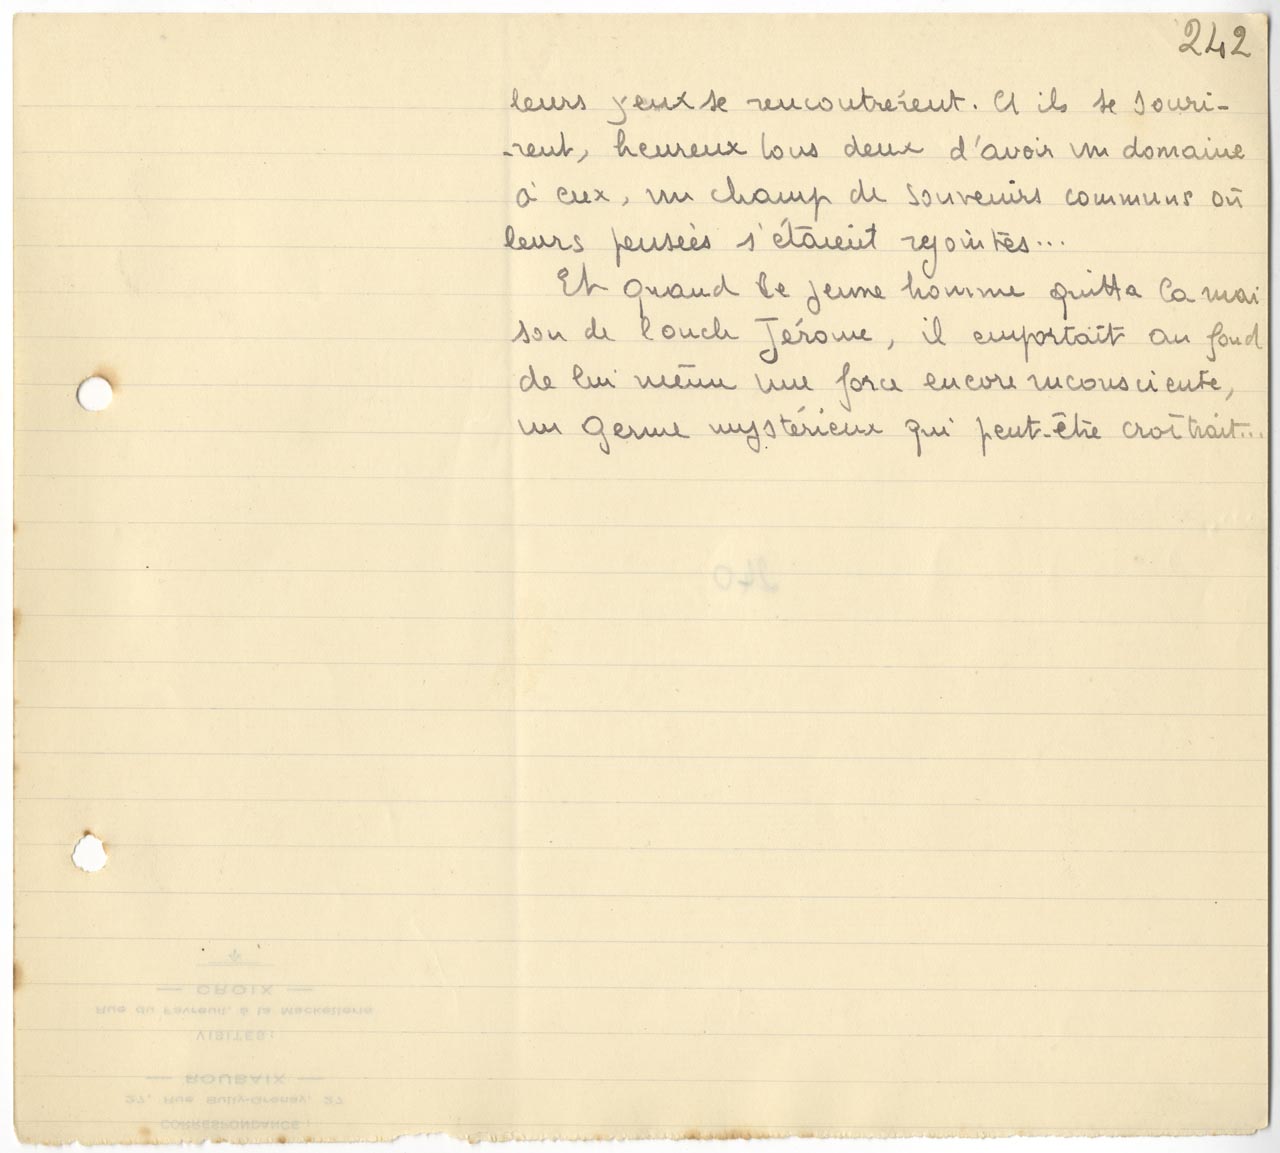 242
leurs yeux se rencontrèrent. Et ils se souri-
-rent, heureux tous deux d'avoir un domaine
à eux, un champ de souvenirs communs où
leurs pensées s'étaient rejointes...
Et quand le jeune homme quitta la mai
son de l'oncle Jérome, il emportait au fond
de lui même une force encore inconsciente,
un germe mystérieux qui peut-être croîtrait...
240
CROIX
Rue du Favreuil, à la Mackellerie
VISITES:
ROUBAIX
27, Rue Bully-Grenay, 27
CORRESPONDANCE: